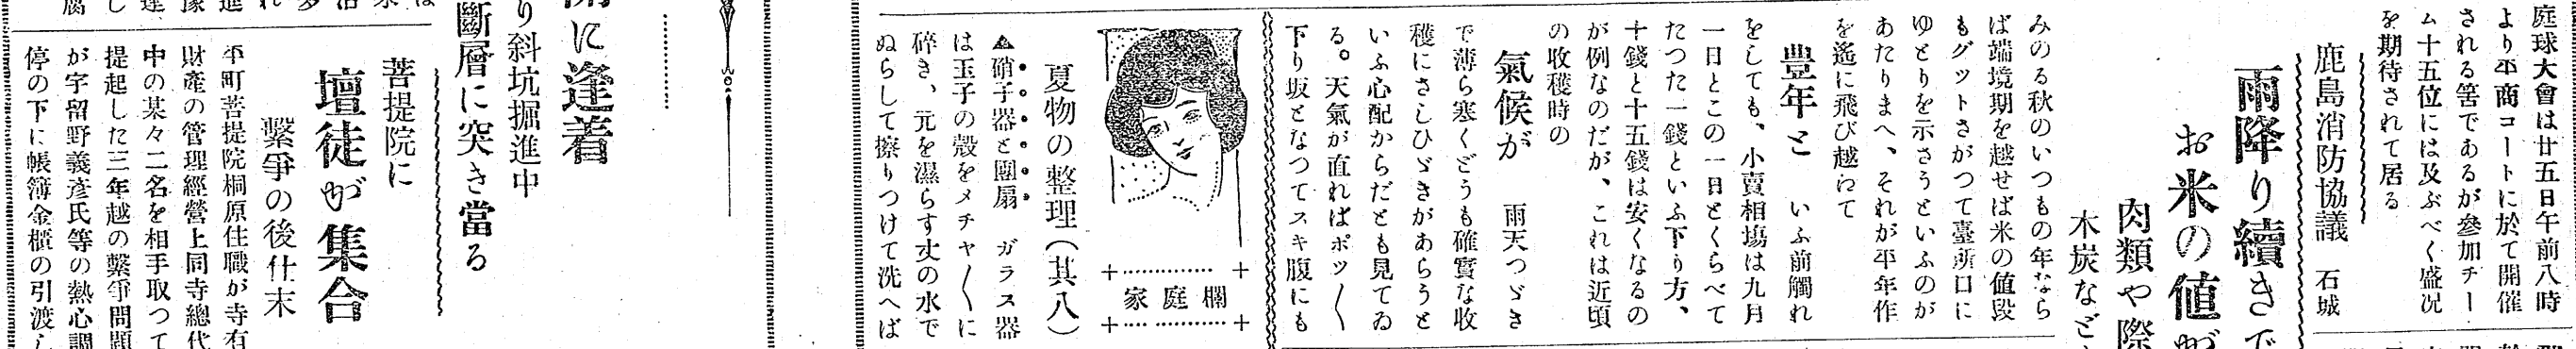 庭球大會は廿五日午前八時
より平商コートに於て開催
される筈であるが參加チー
ム十五位には及ぶべく盛况
を期待されて居る
鹿島消防協議　石城
雨降り續きで
お米の値が
肉類や際
木炭など
みのる秋のいつもの年なら
ば端境期を越せば米の値段
もグツトさがつて臺所口に
ゆとりを示さうといふのが
あたりまへ、それが平年作
を遙に飛び越わて
豊年と　いふ前觸れ
をしても、小賣相塲は九月
一日とこの一日とくらべて
たつた一錢といふ下り方、
十錢と十五錢は安くなるの
が例なのだが、これは近頃
の收穫時の
氣候が　雨天つゞき
で薄ら寒くどうも確實な收
穫にさしひゞきがあらうと
いふ心配からだとも見てゐ
る。天氣が直ればポツ〳〵
下り坂となつてスキ腹にも
家庭欄
夏物の整理(其八)
▲硝子器と團扇　ガラス器
は玉子の殼をメチヤ〳〵に
碎き、元を濕らす丈の水で
ぬらして擦りつけて洗へば
に逢着
り斜坑掘進中
斷層に突き當る
菩提院に
壇徒が集合
繫爭の後仕末
平町菩提院桐原住職が寺有
財産の管理經營上同寺總代
中の某々二名を相手取つて
提起した三年越の繫爭問題
が字留野義彦氏等の熱心調
停の下に帳簿金櫃の引渡し